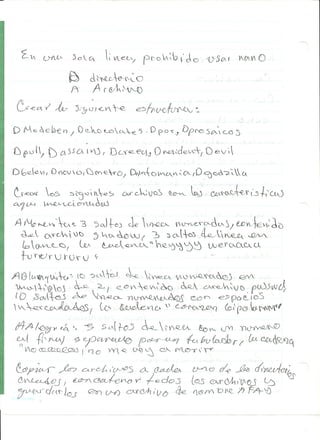 En una sola linea, prohibido usar nano
D directorio
A Archivo
Crear la siguiente estructura:
D Medeben, Dchocolates, Dpor, Dprosaicos
Dpull, Dassains, Dcreed, Dresident, Devil
Dbelen, Dnovio, Dmetro, Dantomania, Dgodzilla
Crear los siguientes archivos con las caracteristicas
aqui mencionadas
AMorenitas 3 saltos de linea numerados, contenido
del archivo shadow, 3 saltos de linea en
blanco, la cadena "heyyyy
tururururu
10 saltos de linea numerados en
multiplos de 2, contenido del archivo passwd
10 saltos de linea numerados con espacios
intercalados, la cadena "corazon
AAlegria: 3 saltos de linea con un numero
al final separado por un tabulador, la cadena
me voy a morir"
Copiar los archivos a cada uno de los directorios
creados, concatenar todos los archivos y
guardarlos en un archivo de nombre